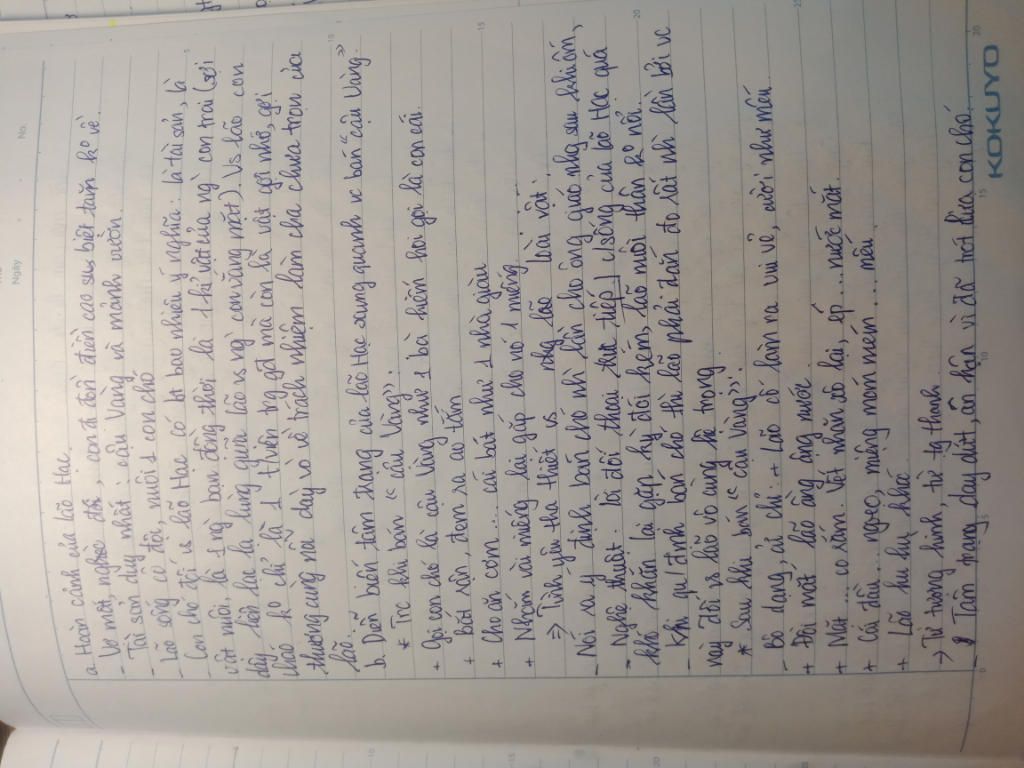 No.
Ngày
a. Hoàn cảnh của lão Hạc.
- Vợ mất, nghèo đói, con đi đồn điền cao su biệt tăm ko về.
- Tài sản duy nhất: cậu Vàng và mảnh vườn.
- Lão sống cô độc, nuôi 1 con chó
- Con chó đối vs lão Hạc có bt bao nhiêu ý nghĩa: là tài sản, là
vật nuôi, là 1 ng bạn đồng thời là 1 kỉ vật của ng con trai (sợi
dây liên lạc lạ lùng giữa lão vs ng con vắng mặt). Vs lão con
chó ko chỉ là 1 t/viên trg gđ mà còn là vật gợi nhớ, gợi
thương cũng nỗi dày vò về trách nhiệm làm cha chưa trọn của
lão.
b. Diễn biến tâm trạng của lão Hạc xung quanh vc bán "cậu Vàng"
* Trc khi bán "cậu Vàng":
+ Gọi con chó là cậu Vàng như 1 bà hiếm hoi gọi là con cái
+ bắt rận, đem ra ao tắm
+ Cho ăn cơm.... cái bát như 1 nhà giàu
+ Nhắm vài miếng lại gắp cho nó 1 miếng
=> Tình yêu tha thiết vs nhg lão loài vật.
- Nói vs ý định bán chó nhì lần cho ông giáo nhg sau khi ốm,
- Nghệ thuật: lời đối thoại trực tiếp] c/sống của lão Hạc quá
khó khăn lại gặp kỳ đói kém, lão nuôi thân ko nổi.
- Khi qu/ định bán chó thì lão phải đắn đo rất nh lần bởi vc
này đối vs lão vô cùng hệ trọng
* Sau khi bán "cậu Vàng":
- Bộ dạng, cử chỉ: + Lão cố làm ra vui vẻ, cười như mếu.
+ Đôi mắt lão ầng ậng nước.
+ Mặt .... co rúm. Vết nhăn xô lại, ép .... nước mắt.
+ Cái đầu... ngoẹo, miệng móm mém .... mếu
+ Lão hu hu khóc
-> Từ tượng hình, từ tg thanh
- Tâm trạng day dứt, ân hận vì đã trót lừa con chó.
KOKUYO